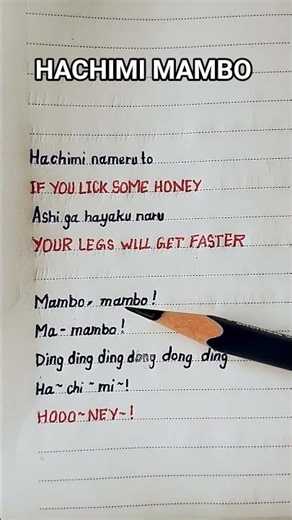 HACHIMI MAMBO
Hachimi nameru to
IF YOU LICK SOME HONEY
Ashi ga hayaku naru
YOUR LEGS WILL GET FASTER
Mambo~ mambo!
Ma - mambo!
Ding ding ding dong dong ding
Ha~ chi ~ mi ~!
HOOO~NEY~!